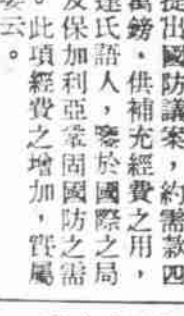 提出國防議案，約需款四
萬鎊，供補充經費之用，
達氏語人，鑒於國際之局
及保加利亞鞏固國防之需
。此項經費之增加，實屬
云。